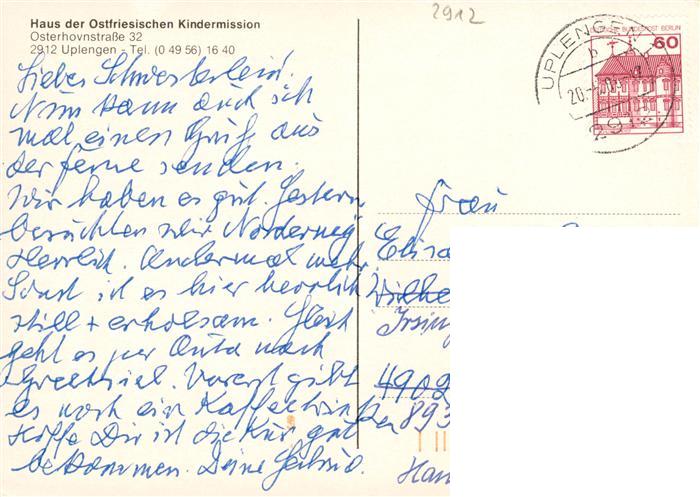 Haus der Ostfriesischen Kindermission
Osterhovnstraße 32
2912 Uplengen - Tel. (0 49 56) 16 40
2912
Liebes Schwesterlein!
Nun kann auch ich
mal einen Gruß aus
der Ferne senden.
Wir haben es gut. Gestern
besuchten wir Norderney
Herrlich. Andermal mehr.
Sonst ist es hier herrlich
still + erholsam. Gleich
geht es per Auto nach
Greetsiel. Vorerst gibt
es noch ein Kaffeetrinken
Hoffe Dir ist die Kur gut
bekommen. Deine
Frau
Elisa
Wilhe
4902
893
Han
UPLENGEN
20.
2912
DEUTSCHE BUNDESPOST BERLIN
60